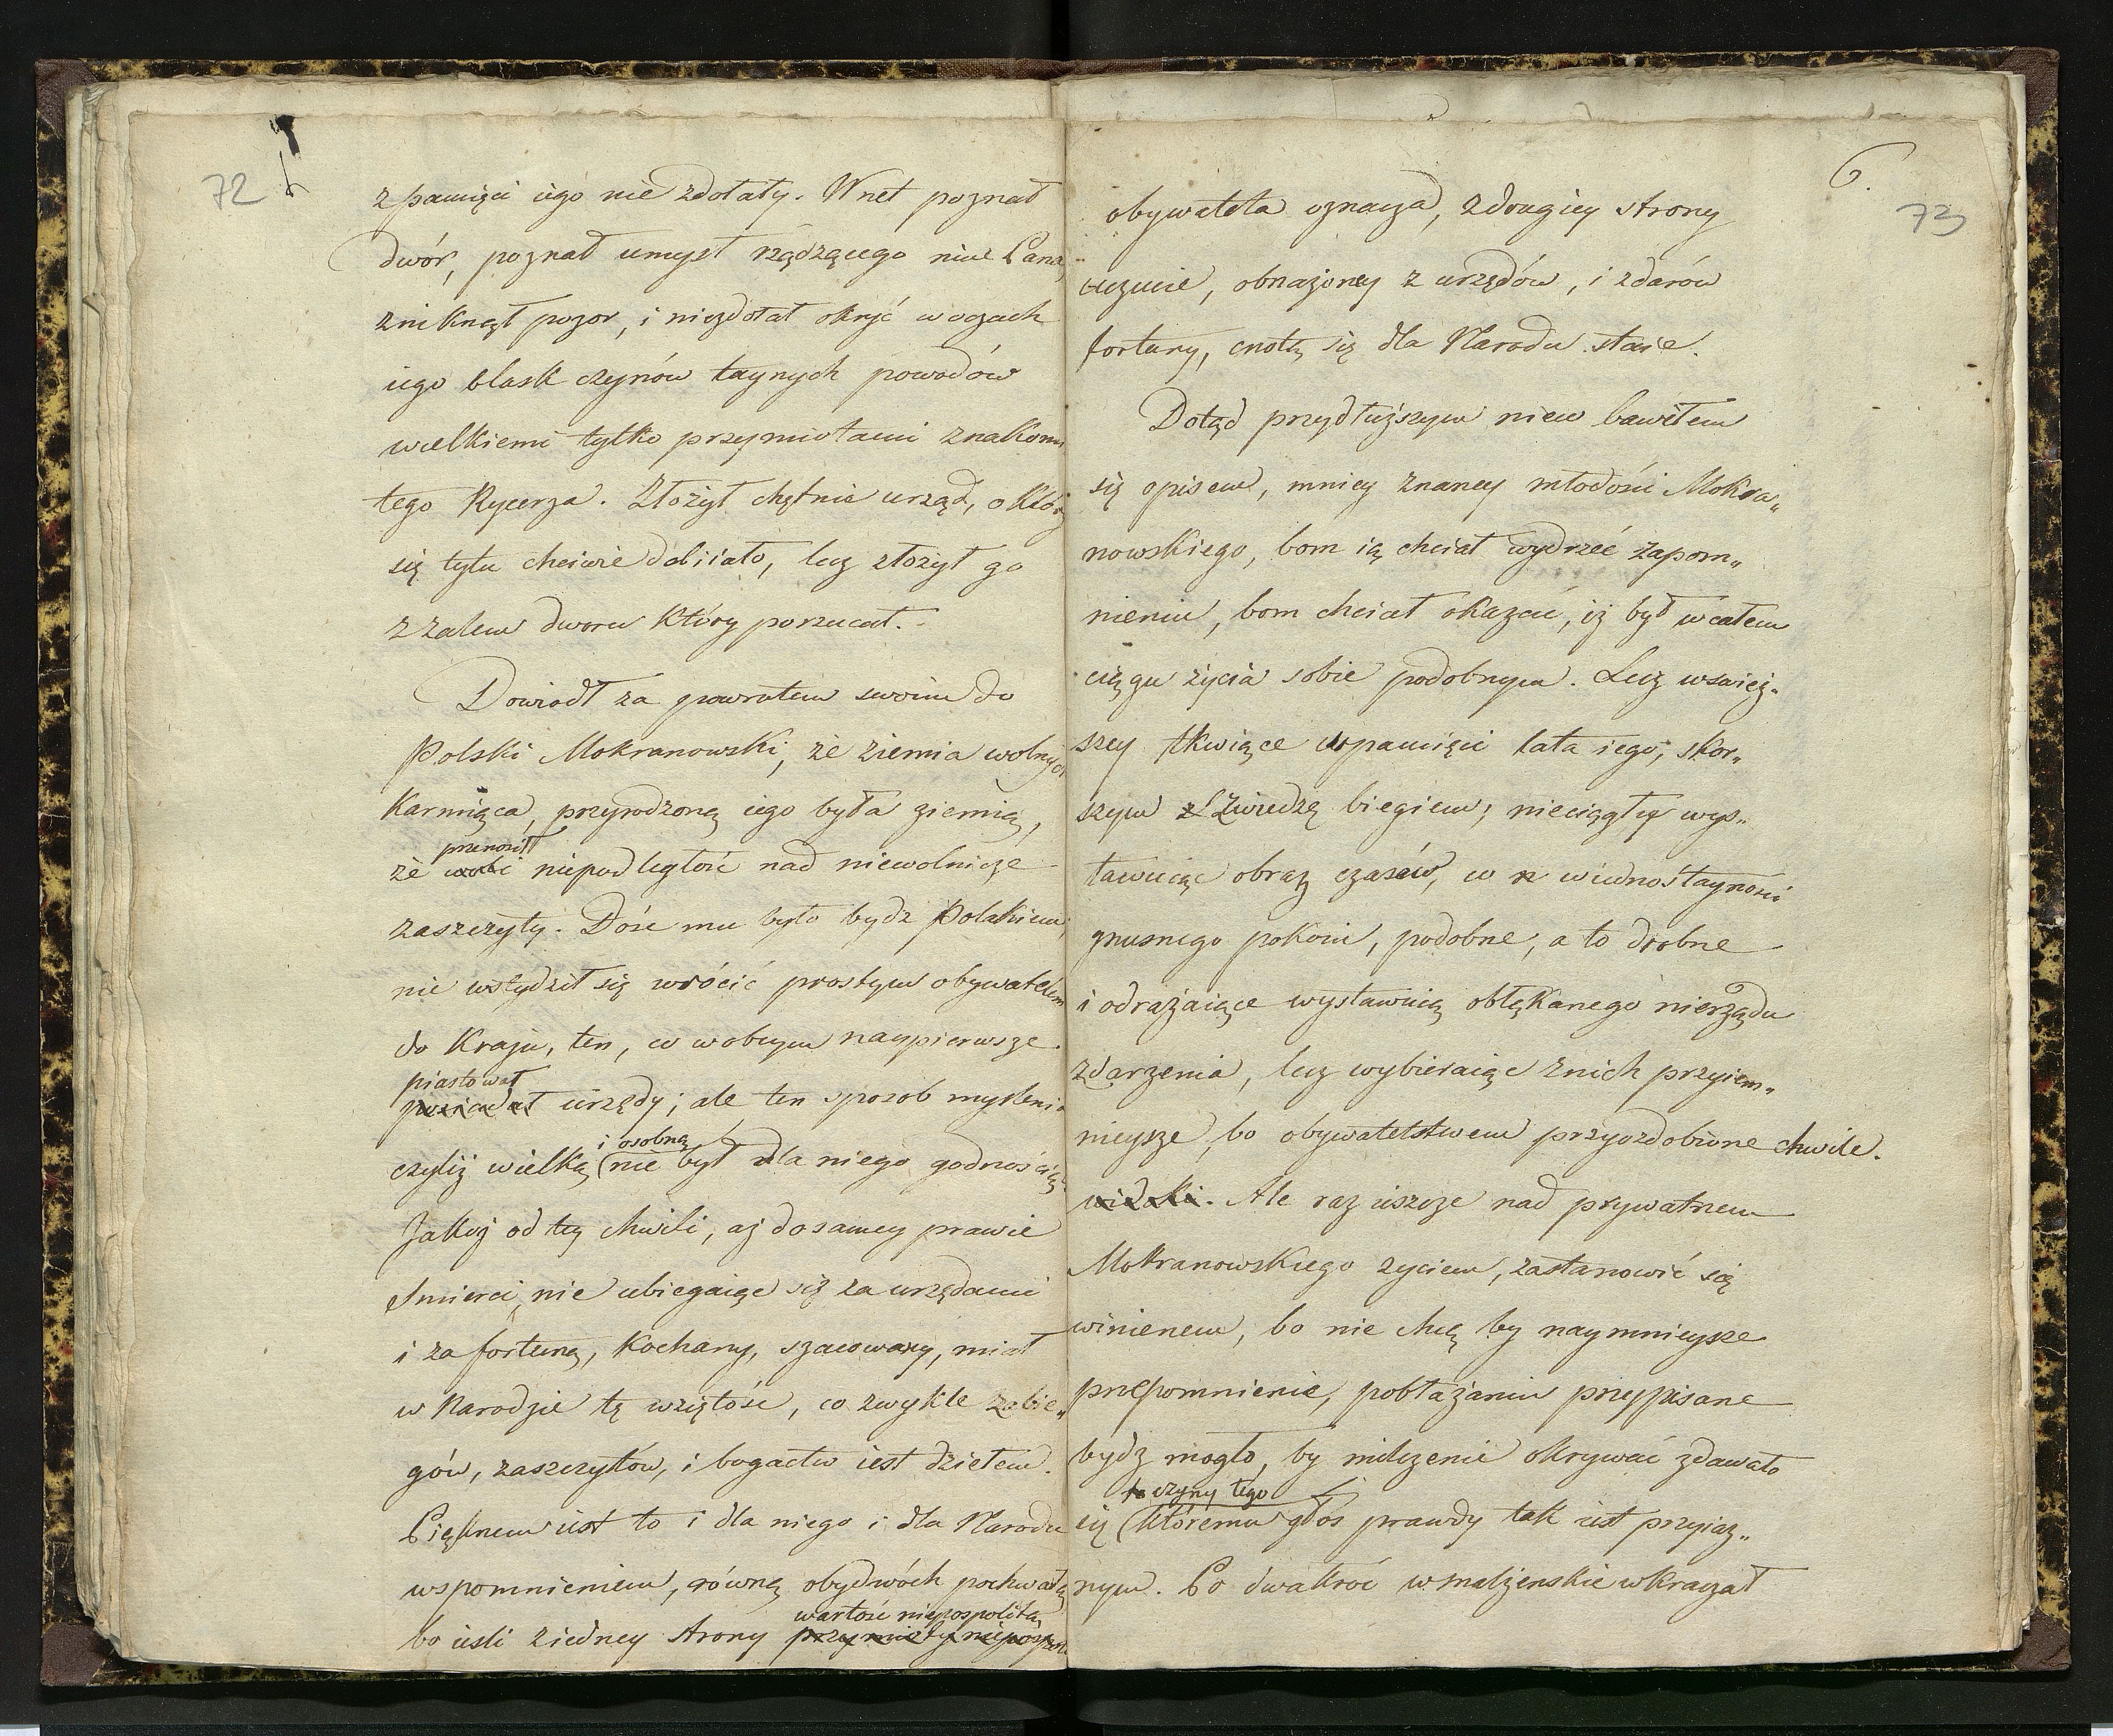 72
z pamięci iego nie zdołały. Wnet poznał
dwór, poznał umysł rządzącego nim Pana,
zniknął pozor, i niezdołał okryć w oczach
iego blask czynów taynych powodów
wielkiemi tylko przymiotami znakomi
tego Rycerza. Złożył chętnie urząd, o który
się tylu chciwie dobiiało, lecz złożył go
z żalem dworu który porzucał.
Dowiodł za powrotem swoim do
Polski Mokranowski, że ziemia wolnych
Karmiąca, przyrodzoną iego była ziemią,
przenosił
że woli niepodległość nad niewolnicze
zaszczyty. Dość mu było bydz Polakiem,
nie wstydził się wrócić prostym obywatelem
do Kraju, ten, co w obcym naypierwsze
piastował
posiadał urzędy; ale ten sposob myslenia
i osobną
czyliż wielką (nie był dla niego godnością.
Jakoż od tey chwili, aż do samey prawie
Smierci, nie ubiegaiąc się za urzędami
i za fortuną, Kochany, szacowany, miał
w Narodzie tę wziętość, co zwykle zabie„
gów, zaszczytów, i bogactw iest dziełem.
Pięknem iest to i dla niego i dla Narodu
wspomnieniem, równą obydwóch pochwałą
wartość niepospolitą
bo iesli z iedney strony przymioty niepospol
6.
73
obywatela oznacza, z drugiey strony
uczucie, obnażoney z urzędów, i z darów
fortuny, cnotą się dla Narodu staie.
Dotąd przydłuższym niem bawiłem
się opisem, mniey znaney młodości Mokra„
nowskiego, bom ią chciał wydrzeć zapom„
nieniu, bom chciał okazać, iż był w całem
ciągu życia sobie podobnym. Lecz w swież„
szey tkwiące w pamięci lata iego, skor„
szym zwiedzę biegiem; nieciągły wys„
tawuiąc obraz czasów, w n wiednostayności
gnusnego pokoiu, podobne, a to drobne
i odrażaiące wystawuią obłąkanego nierządu
zdarzenia, lecz wybieraiąc z nich przyiem„
nieysze, bo obywatelstwem przyozdobione chwile.
widoki. Ale raz ieszcze nad prywatnem
Mokranowskiego zyciem, zastanowić się
winienem, bo nie chcę by naymnieysze
przepomnienie, pobłażaniu przypisane
bydz mogło, by milczenie okrywać zdawało
czyny tego
się (któremu głos prawdy tak iest przyiaz„
nym. Po dwakroć w małżenskie wkraczał